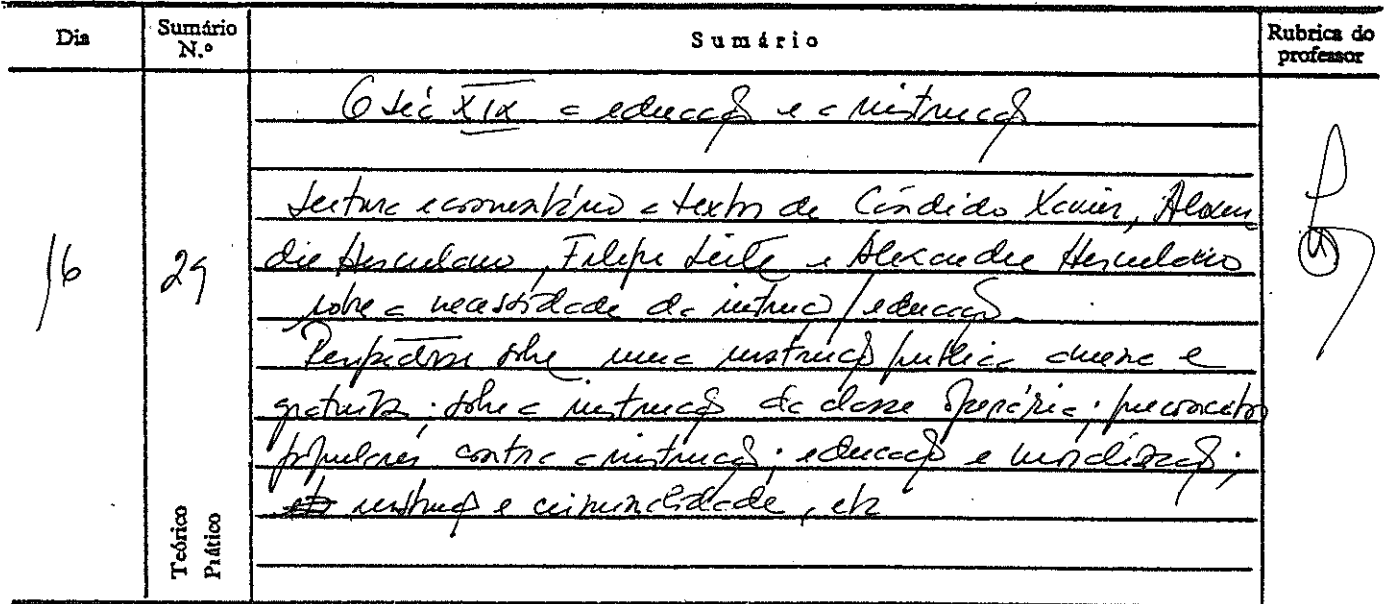 Dia
Sumário N.º
Sumário
Rubrica do professor
O séc XIX a educação e a instrução
16
29
Leitura e comentário a textos de Cândido Xavier, Alexan
dre Herculano, Filipe Leite e Alexandre Herculano
sobre a necessidade da instrução/educação.
sobre uma instrução publica e
gratuita; sobre a instrução da classe operária; preconceitos
populares contra a instrução; educação e moralização;
instrução e criminalidade, etc
Teórico
Prático